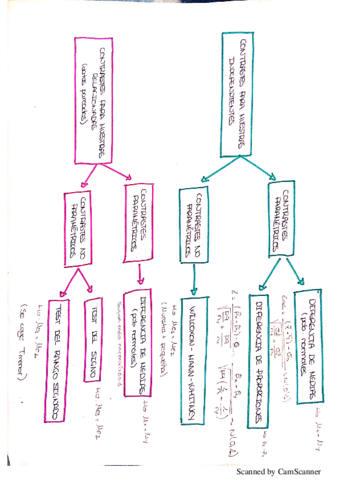 CONTRASTES PARA MUESTRAS
INDEPENDIENTES
CONTRASTES
PARAMÉTRICOS
DIFERENCIA DE MEDIAS
(pob normales)
H₀ μₓ = μᵧ
DIFERENCIA DE PROPORCIONES
CONTRASTES NO
PARAMÉTRICOS
WILCOXON - MANN - WHITNEY
H₀ Me₁ = Me₂
(Muestra + pequeña)
CONTRASTES PARA MUESTRAS
RELACIONADAS
(datos pareados)
CONTRASTES
PARAMÉTRICOS
DIFERENCIA DE MEDIAS
(pob normales)
H₀ μₓ = μᵧ
CONTRASTES NO
PARAMÉTRICOS
TEST DEL SIGNO
H₀ Me₁ = Me₂
TEST DEL RANGO SIGNADO
H₀ Me₁ = Me₂
(Se coge T menor)
Scanned by CamScanner